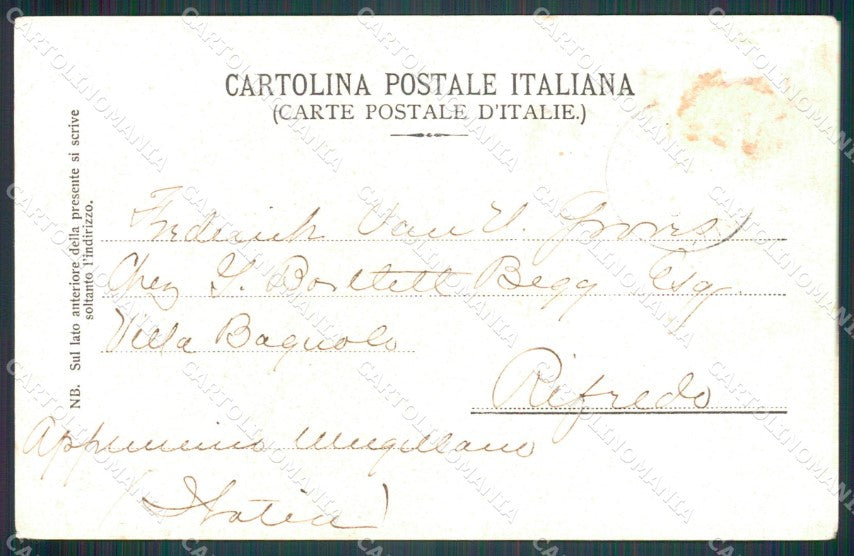 CARTOLINA POSTALE ITALIANA
(CARTE POSTALE D'ITALIE.)
NB. Sul lato anteriore della presente si scrive
soltanto l'indirizzo.
Frederick Van
Chez Bartlett Begg Esq.
Villa Bagnolo
Rifredo
Appennino Mugellano
(Italia)
CARTOLINOMANIA